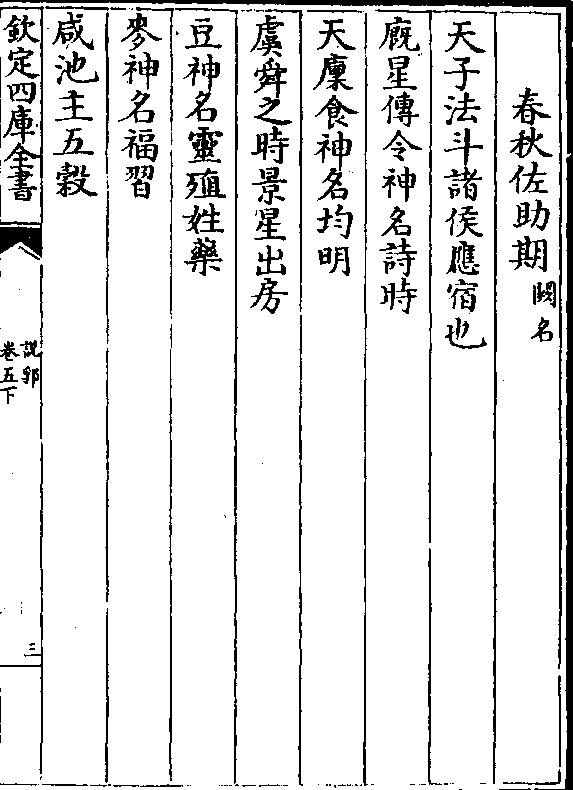 春秋佐助期 闕名
天子法斗諸侯應宿也
廐星傳令神名詩時
天廩食神名均明
虞舜之時景星出房
豆神名靈殖姓藥
麥神名福習
咸池主五穀
欽定四庫全書
說郛
卷五下
三